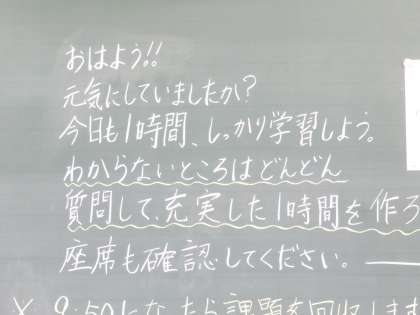 おはよう!!
元気にしていましたか?
今日も1時間、しっかり学習しよう。
わからないところはどんどん
質問して、充実した1時間を作ろ
座席も確認してください。
※ 9:50になったら課題を回収しま